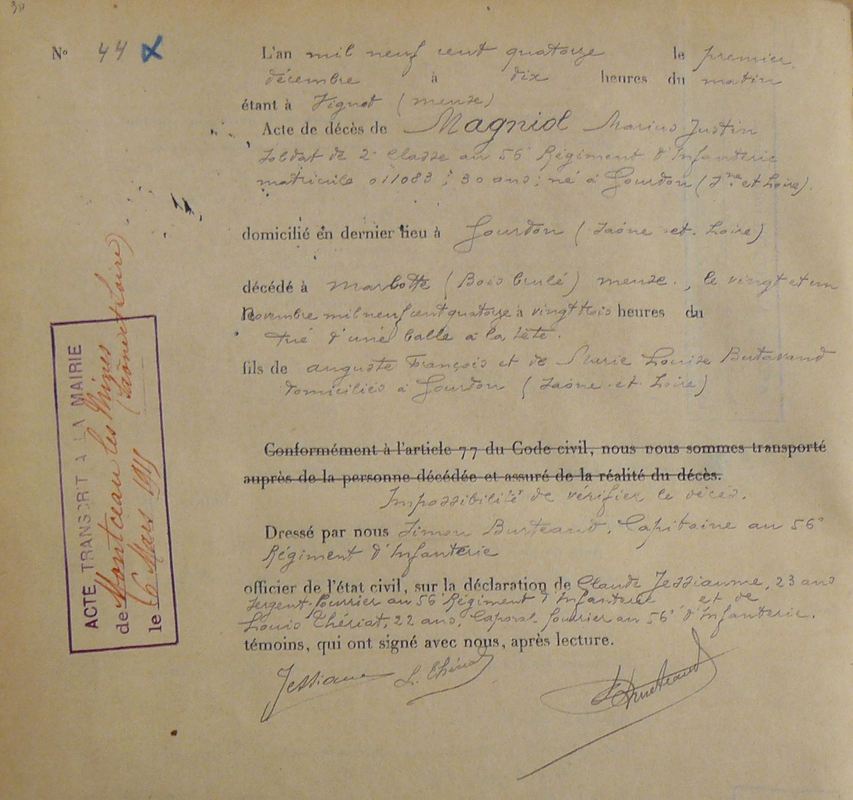 30
N° 44 X
L'an mil neuf cent quatorze le premier
décembre à dix heures du matin
étant à Vignot (meuse)
Acte de décès de Magniol Marius Justin
Soldat de 2e Classe au 56e Régiment d'Infanterie
matricule 011083 ; 30 ans ; né à Gourdon (Sne et Loire).
domicilié en dernier lieu à Gourdon (Saône et Loire)
décédé à Marbotte (Bois brulé) meuse., le vingt et un
Novembre mil neuf cent quatorze à vingt trois heures du
tué d'une balle à la tête.
fils de auguste François et de Marie Louise Butavand
domiciliés à Gourdon (Saône et Loire)
Conformément à l'article 77 du Code civil, nous nous sommes transporté
auprès de la personne décédée et assuré de la réalité du décès.
Impossibilité de vérifier le décès.
Dressé par nous Simon Burteaud, Capitaine au 56e
Régiment d'Infanterie
officier de l'état civil, sur la déclaration de Claude Jessiaume, 23 ans
Sergent-fourrier au 56e Régiment d'Infanterie et de
Louis Thériat, 22 ans, Caporal fourrier au 56e d'Infanterie.
témoins, qui ont signé avec nous, après lecture.
Jessiaume L. Thériat Burteaud
ACTE TRANSCRIT A LA MAIRIE
de Montceau les Mines (Saône et Loire)
le 6 Mars 1915